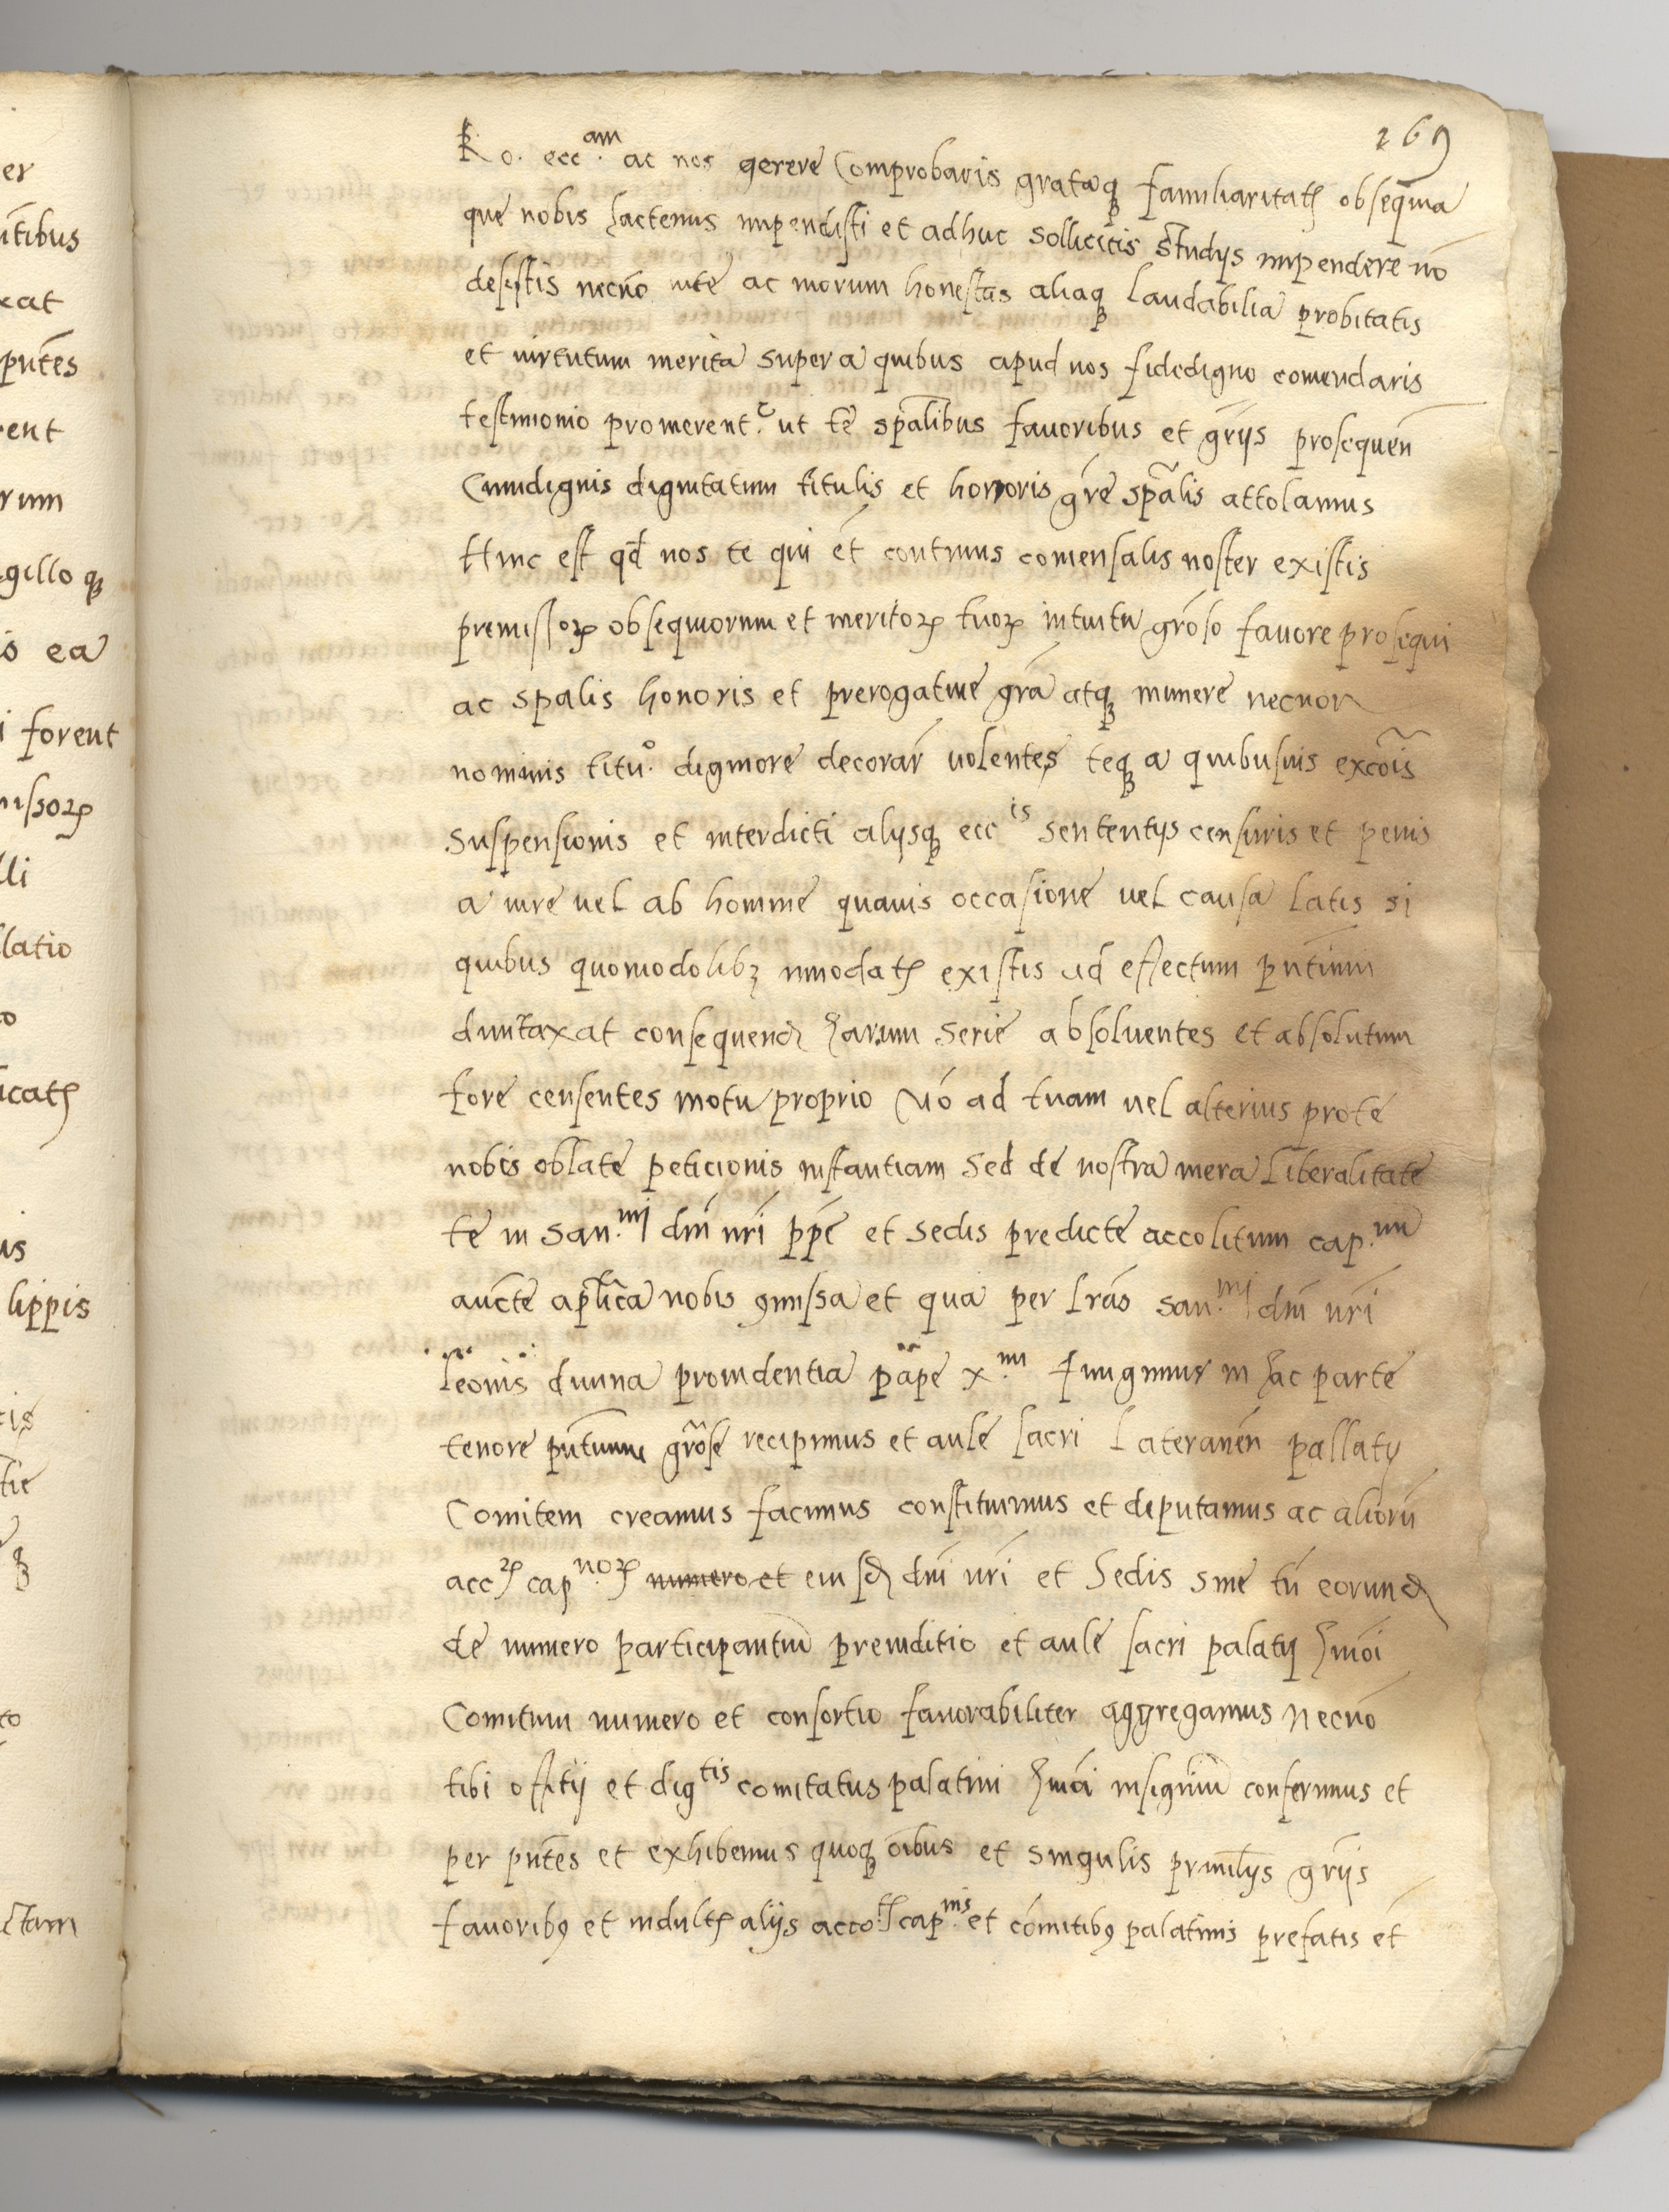 269
Ro. ecc.am ac nos gerere Comprobaris grataq̨ familiaritatꝭ obseq̄uia
que nobis hactenus impendisti et adhuc sollicitis studijs impendere nō
desistis necnō uite ac morum honestas aliaq̨ laudabilia probitatis
et uirtutum merita super a quibus apud nos fidedigno comendaris
testimonio promerent.r ut te sp̄alibus favoribus et gr̄ijs prosequen̄
Cumdignis dignitatum titulis et honoris gr̄e sp̄alis attolamus
Hinc est qd̄ nos te qui et̄ continuus comensalis noster existis
premissoꝝ obsequiorum et meritoꝝ tuoꝝ intuitu gr̄oso favore prosequi
ac spalis honoris et prerogative gr̄a atq̨ munere necnon
nominis titu.o digniore decorar̄ uolentes teq̨ a quibusuis excōis
suspensionis et interdicti alijsq̨ ecc is sententijs censuris et penis
a iure uel ab homine quauis occasione uel causa latis si
quibus quomodolibꝫ innodatꝭ existis ad effectum pn̄tium
duntaxat consequend̄ harum serie absoluentes et absolutum
fore censentes motu proprio nō ad tuam uel alterius pro te
nobis oblate peticionis instantiam sed de nostra mera liberalitate
te in san.mi dn̄i nr̄i pp̄e et sedis predicte accolitum cap.nu
auc̄te aplīca nobis ꝯmissa et qua per lr̄as san.mi dn̄i nr̄i
Leonis diuina prouidentia pāpe x.mi fungimur in hac parte
tenore pn̄tium gr̄ose recipimus et aule sacri Lateranen̄ pallatij
Comitem creamus facimus constituimus et deputamus ac aliorū
accꝝ cap.noꝝ numero et eiusd̄ dn̄i nr̄i et sedis sine tn̄ eorund̄
de numero participantiū preiuditio et aule sacri palatij hmōi
Comitum numero et consortio favorabiliter aggregamus necnō
tibi offitij et dig tis comitatus palatini hmōi insigniū conferimus et
per pn̄tes et exhibemus quoq̨ oībus et singulis priuilijs gr̄ijs
favoribꝯ et indultꝭ alijs acco.tꝭ cap.nis et comitibꝯ palatinis prefatis et̄